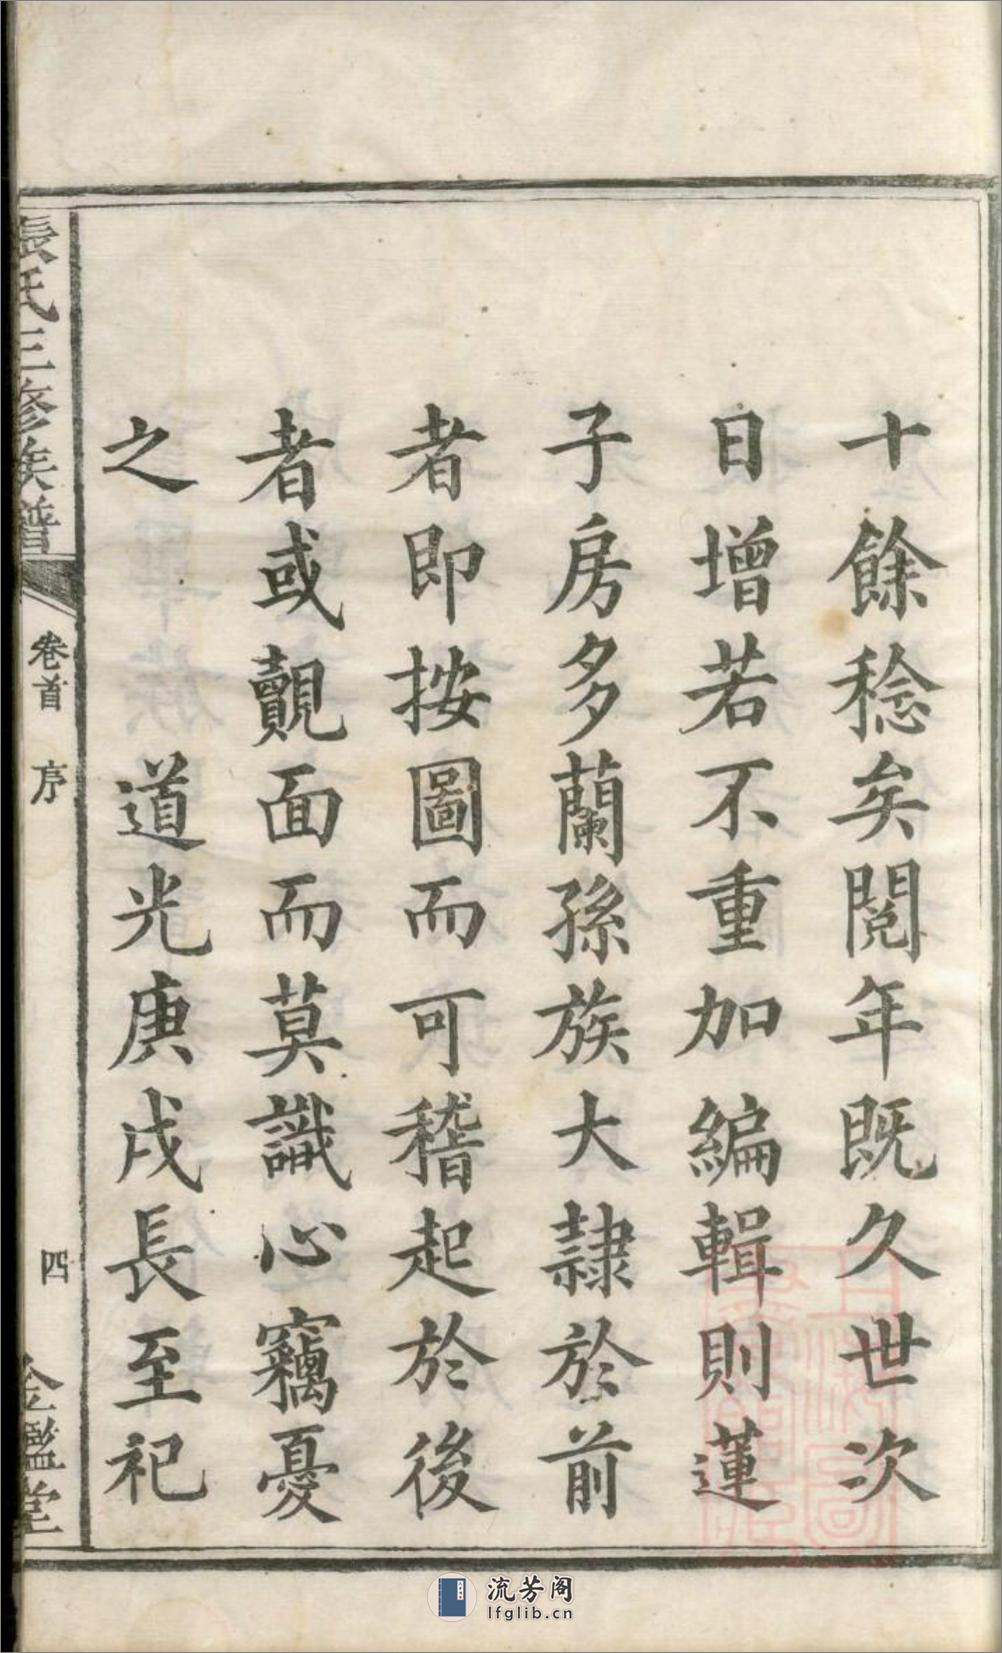 十餘稔矣閱年既久世次
日增若不重加編輯則蓮
子房多蘭孫族大隸於前
者即按圖而可稽起於後
者或觀面而莫識心竊憂
之　道光庚戌長至祀
張氏三修族譜
卷首　序
四
金鑑堂
流芳阁
lfglib.cn